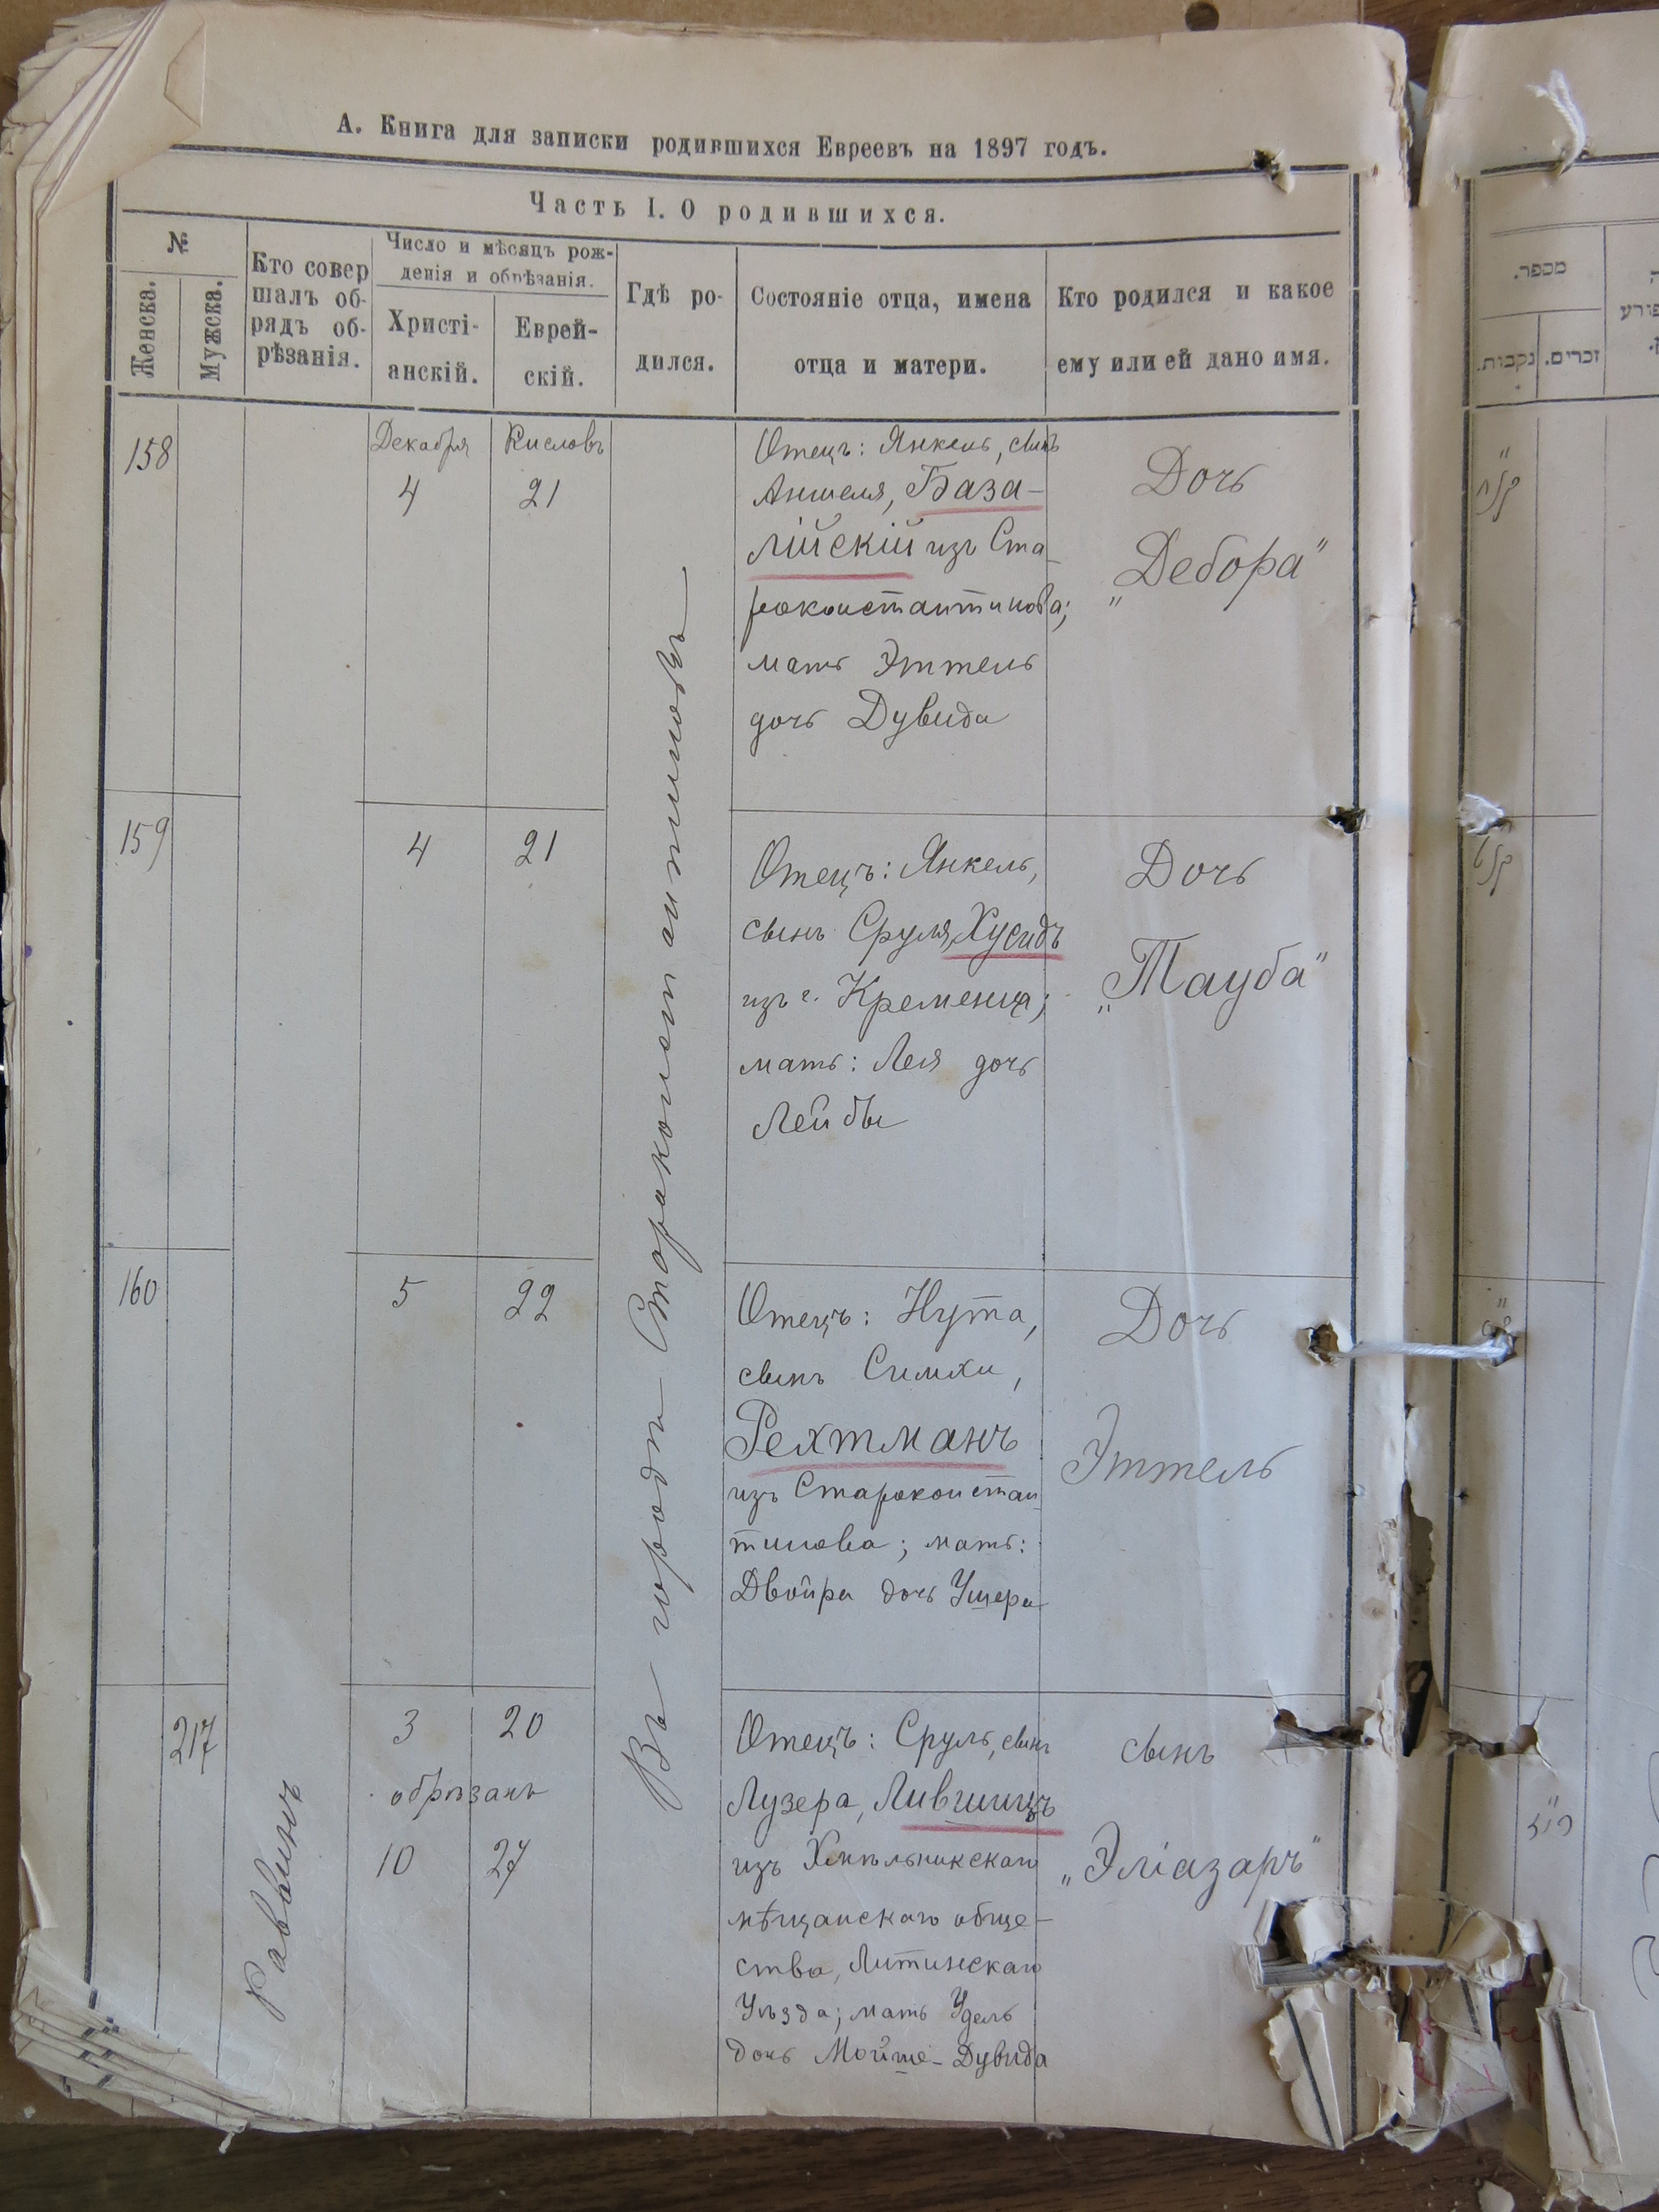 А. Книга для записки родившихся Евреевъ на 1897 годъ.
Часть I. О родившихся.
№
Женска.
Мужска.
Кто совер
шалъ об-
рядъ об-
рѣзанія.
Число и мѣсяцъ рож-
денія и обрѣзанія.
Христі-
анскій.
Еврей-
скій.
Гдѣ ро-
дился.
Состояніе отца, имена
отца и матери.
Кто родился и какое
ему или ей дано имя.
158
Декабря
4
Кисловъ
21
Отецъ: Янкель, сынъ
Аншеля, База-
лійскій изъ Ста-
роконстантинова;
мать Эттель
дочь Дувида
Дочь
„Дебора"
159
4
21
Отецъ: Янкель,
сынъ Сруля, Хусидъ
изъ г. Кременца;
мать: Лея дочь
Лейбы
Дочь
„Тауба"
160
5
22
Отецъ: Нута,
сынъ Симхи,
Рехтманъ
изъ Староконстан
тинова; мать:
Двойра дочь Ушера
Дочь
Эттель
217
Раввинъ
3
20
обрѣзанъ
10
27
Въ городѣ Староконстантиновѣ
Отецъ: Сруль, сынъ
Лузера, Лившицъ
изъ Хмѣльникскаго
мѣщанскаго обще-
ства, Литинскаго
Уѣзда; мать Удель
дочь Мойше-Дувида
сынъ
„Эліазаръ"
מספר.
נקבות.
זכרים.
קנ"ח
קנ"ט
ק"ס
רי"ז